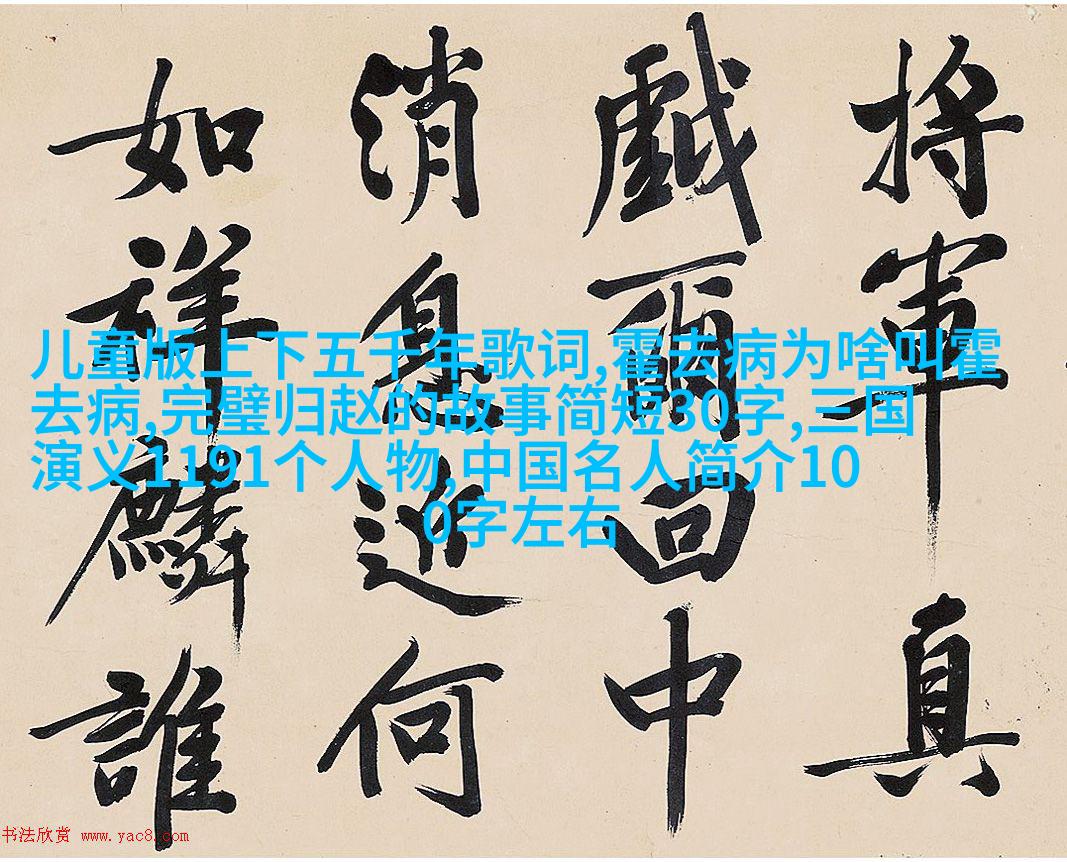 將軍真
戲爾回中
消息近何
如祥麟誰
儿童版上下五千年歌词,霍去病为啥叫霍
去病,完璧归赵的故事简短30字,三国
演义1191个人物,中国名人简介10
0字左右
书法欣赏 www.yac8.com